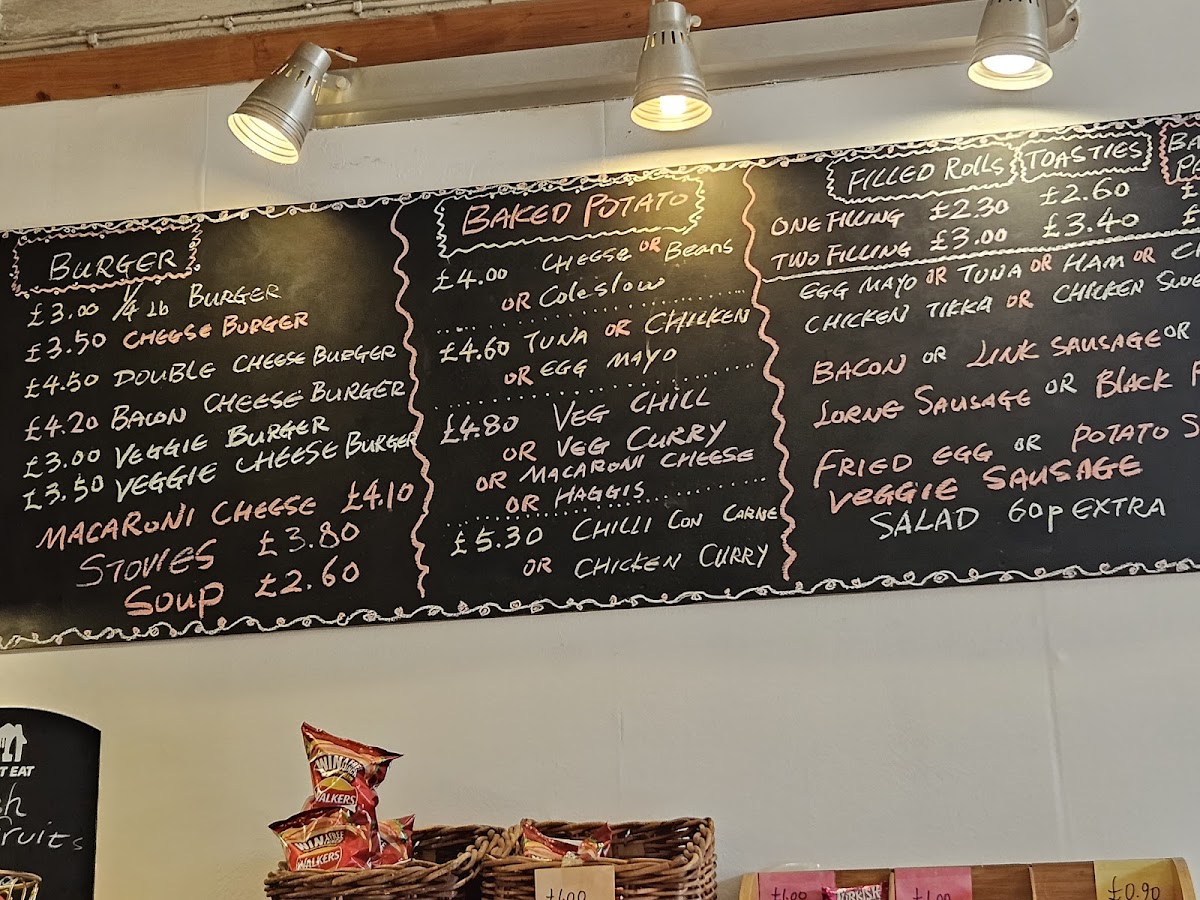 BURGER
£3.00 1/4 lb BURGER
£3.50 CHEESE BURGER
£4.50 DOUBLE CHEESE BURGER
£4.20 BACON CHEESE BURGER
£3.00 VEGGIE BURGER
£3.50 VEGGIE CHEESE BURGER
MACARONI CHEESE £4.10
STOVIES £3.80
SOUP £2.60
BAKED POTATO
£4.00 CHEESE OR Beans
OR Coleslow
£4.60 TUNA OR CHICKEN
OR EGG MAYO
£4.80 VEG CHILL
OR VEG CURRY
OR MACARONI CHEESE
OR HAGGIS
£5.30 CHILLI CON CARNE
OR CHICKEN CURRY
FILLED ROLLS TOASTIES
ONE FILLING £2.30 £2.60
TWO FILLING £3.00 £3.40
EGG MAYO OR TUNA OR HAM OR
CHICKEN TIKKA OR CHICKEN
BACON OR LINK SAUSAGE OR
LORNE SAUSAGE OR BLACK
FRIED EGG OR POTATO
VEGGIE SAUSAGE
SALAD 60p EXTRA
EAT
WIN
WALKERS
WIN
WALKERS
£0.90